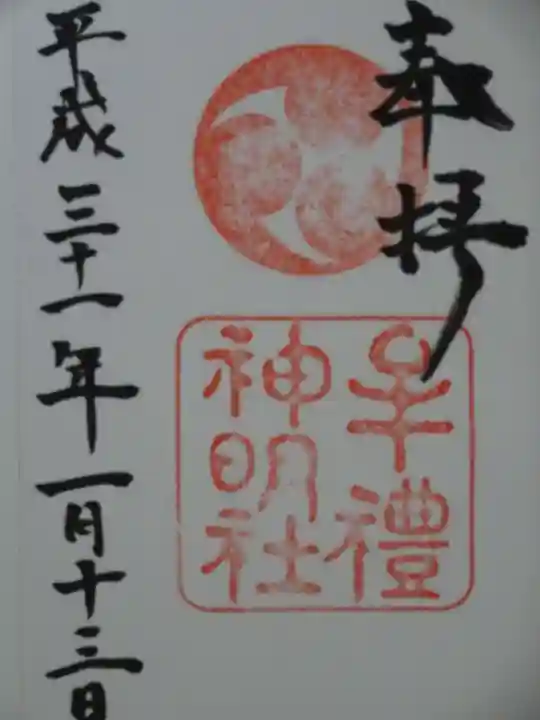 奉拝
牟禮
神明社
平成三十一年一月十三日